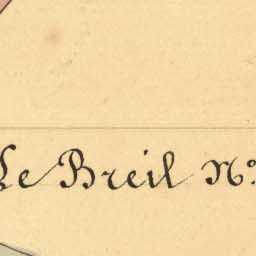 Le Breil N°